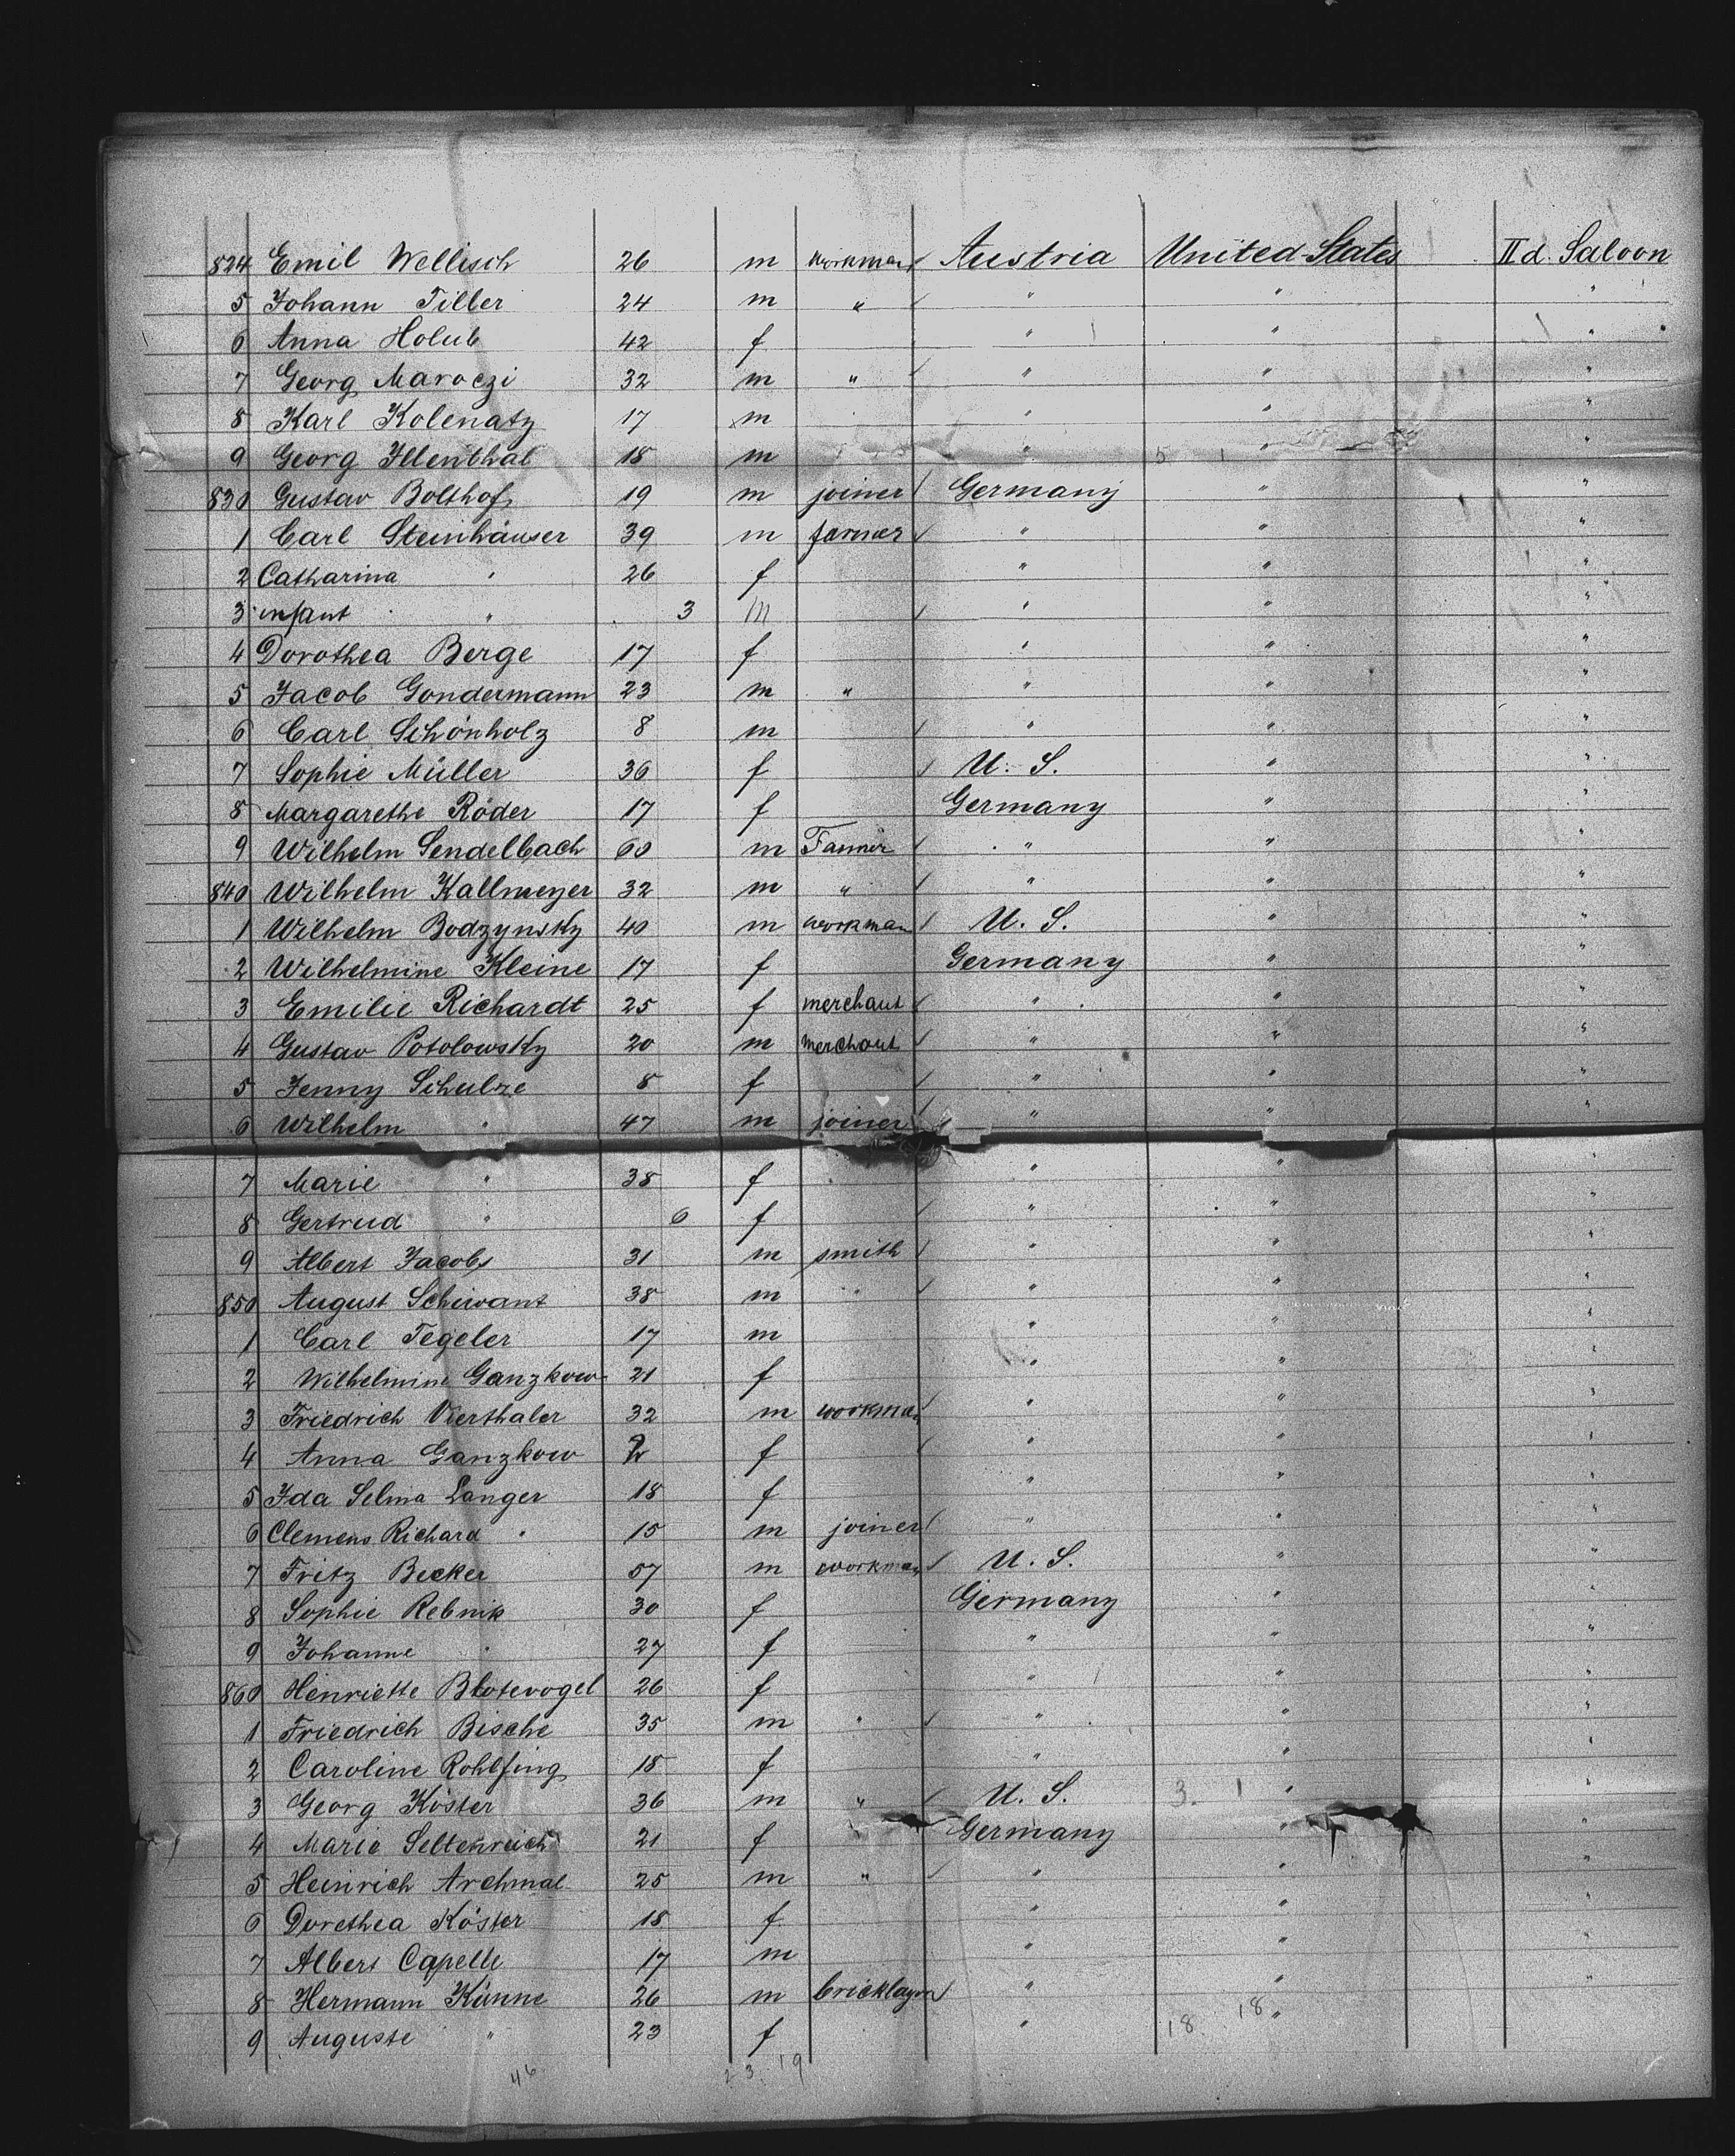 824 Emil Wellisch 26 m workman Austria United States IId. Saloon
5 Johann Tiller 24 m " " " "
6 Anna Holub 42 f " " "
7 Georg Maroczi 32 m " " " "
8 Karl Kolenaty 17 m " " "
9 Georg Illenthal 18 m " 5 1 " "
830 Gustav Bolthof 19 m joiner Germany " "
1 Carl Steinhäuser 39 m farmer " " "
2 Catharina " 26 f " " "
3 infant " 3 m " " "
4 Dorothea Berge 17 f " " "
5 Jacob Gondermann 23 m " " " "
6 Carl Schönholz 8 m " " "
7 Sophie Müller 36 f U. S. " "
8 Margarethe Röder 17 f Germany " "
9 Wilhelm Sendelbach 60 m Farmer " " "
840 Wilhelm Kallmeyer 32 m " " " "
1 Wilhelm Bodzynsky 40 m workman U. S. " "
2 Wilhelmine Kleine 17 f Germany " "
3 Emilie Richardt 25 f merchant " " "
4 Gustav Potolowsky 20 m merchant " " "
5 Jenny Schulze 8 f " " "
6 Wilhelm " 47 m joiner " " "
7 Marie " 38 f " " "
8 Gertrud " 6 f " " "
9 Albert Jacobs 31 m smith " " "
850 August Schwant 38 m " " " "
1 Carl Tegeler 17 m " " "
2 Wilhelmine Ganzkow 21 f " " "
3 Friedrich Vierthaler 32 m workman " " "
4 Anna Ganzkow f " " "
5 Ida Selma Langer 18 f " " "
6 Clemens Richard " 15 m joiner " " "
7 Fritz Becker 57 m workman U. S. " "
8 Sophie Rebnik 30 f Germany " "
9 Johanne " 27 f " " "
860 Henriette Blotevogel 26 f " " "
1 Friedrich Bische 35 m " " " "
2 Caroline Rohlfing 18 f " " "
3 Georg Köster 36 m " U. S. 3. 1 " "
4 Marie Seltenreich 21 f Germany " "
5 Heinrich Archmal 25 m " " " "
6 Dorethea Köster 18 f " " "
7 Albert Capelle 17 m " " "
8 Hermann Künne 26 m bricklayer " " "
9 Auguste " 23 f " 18. 18 "
46 23. 19